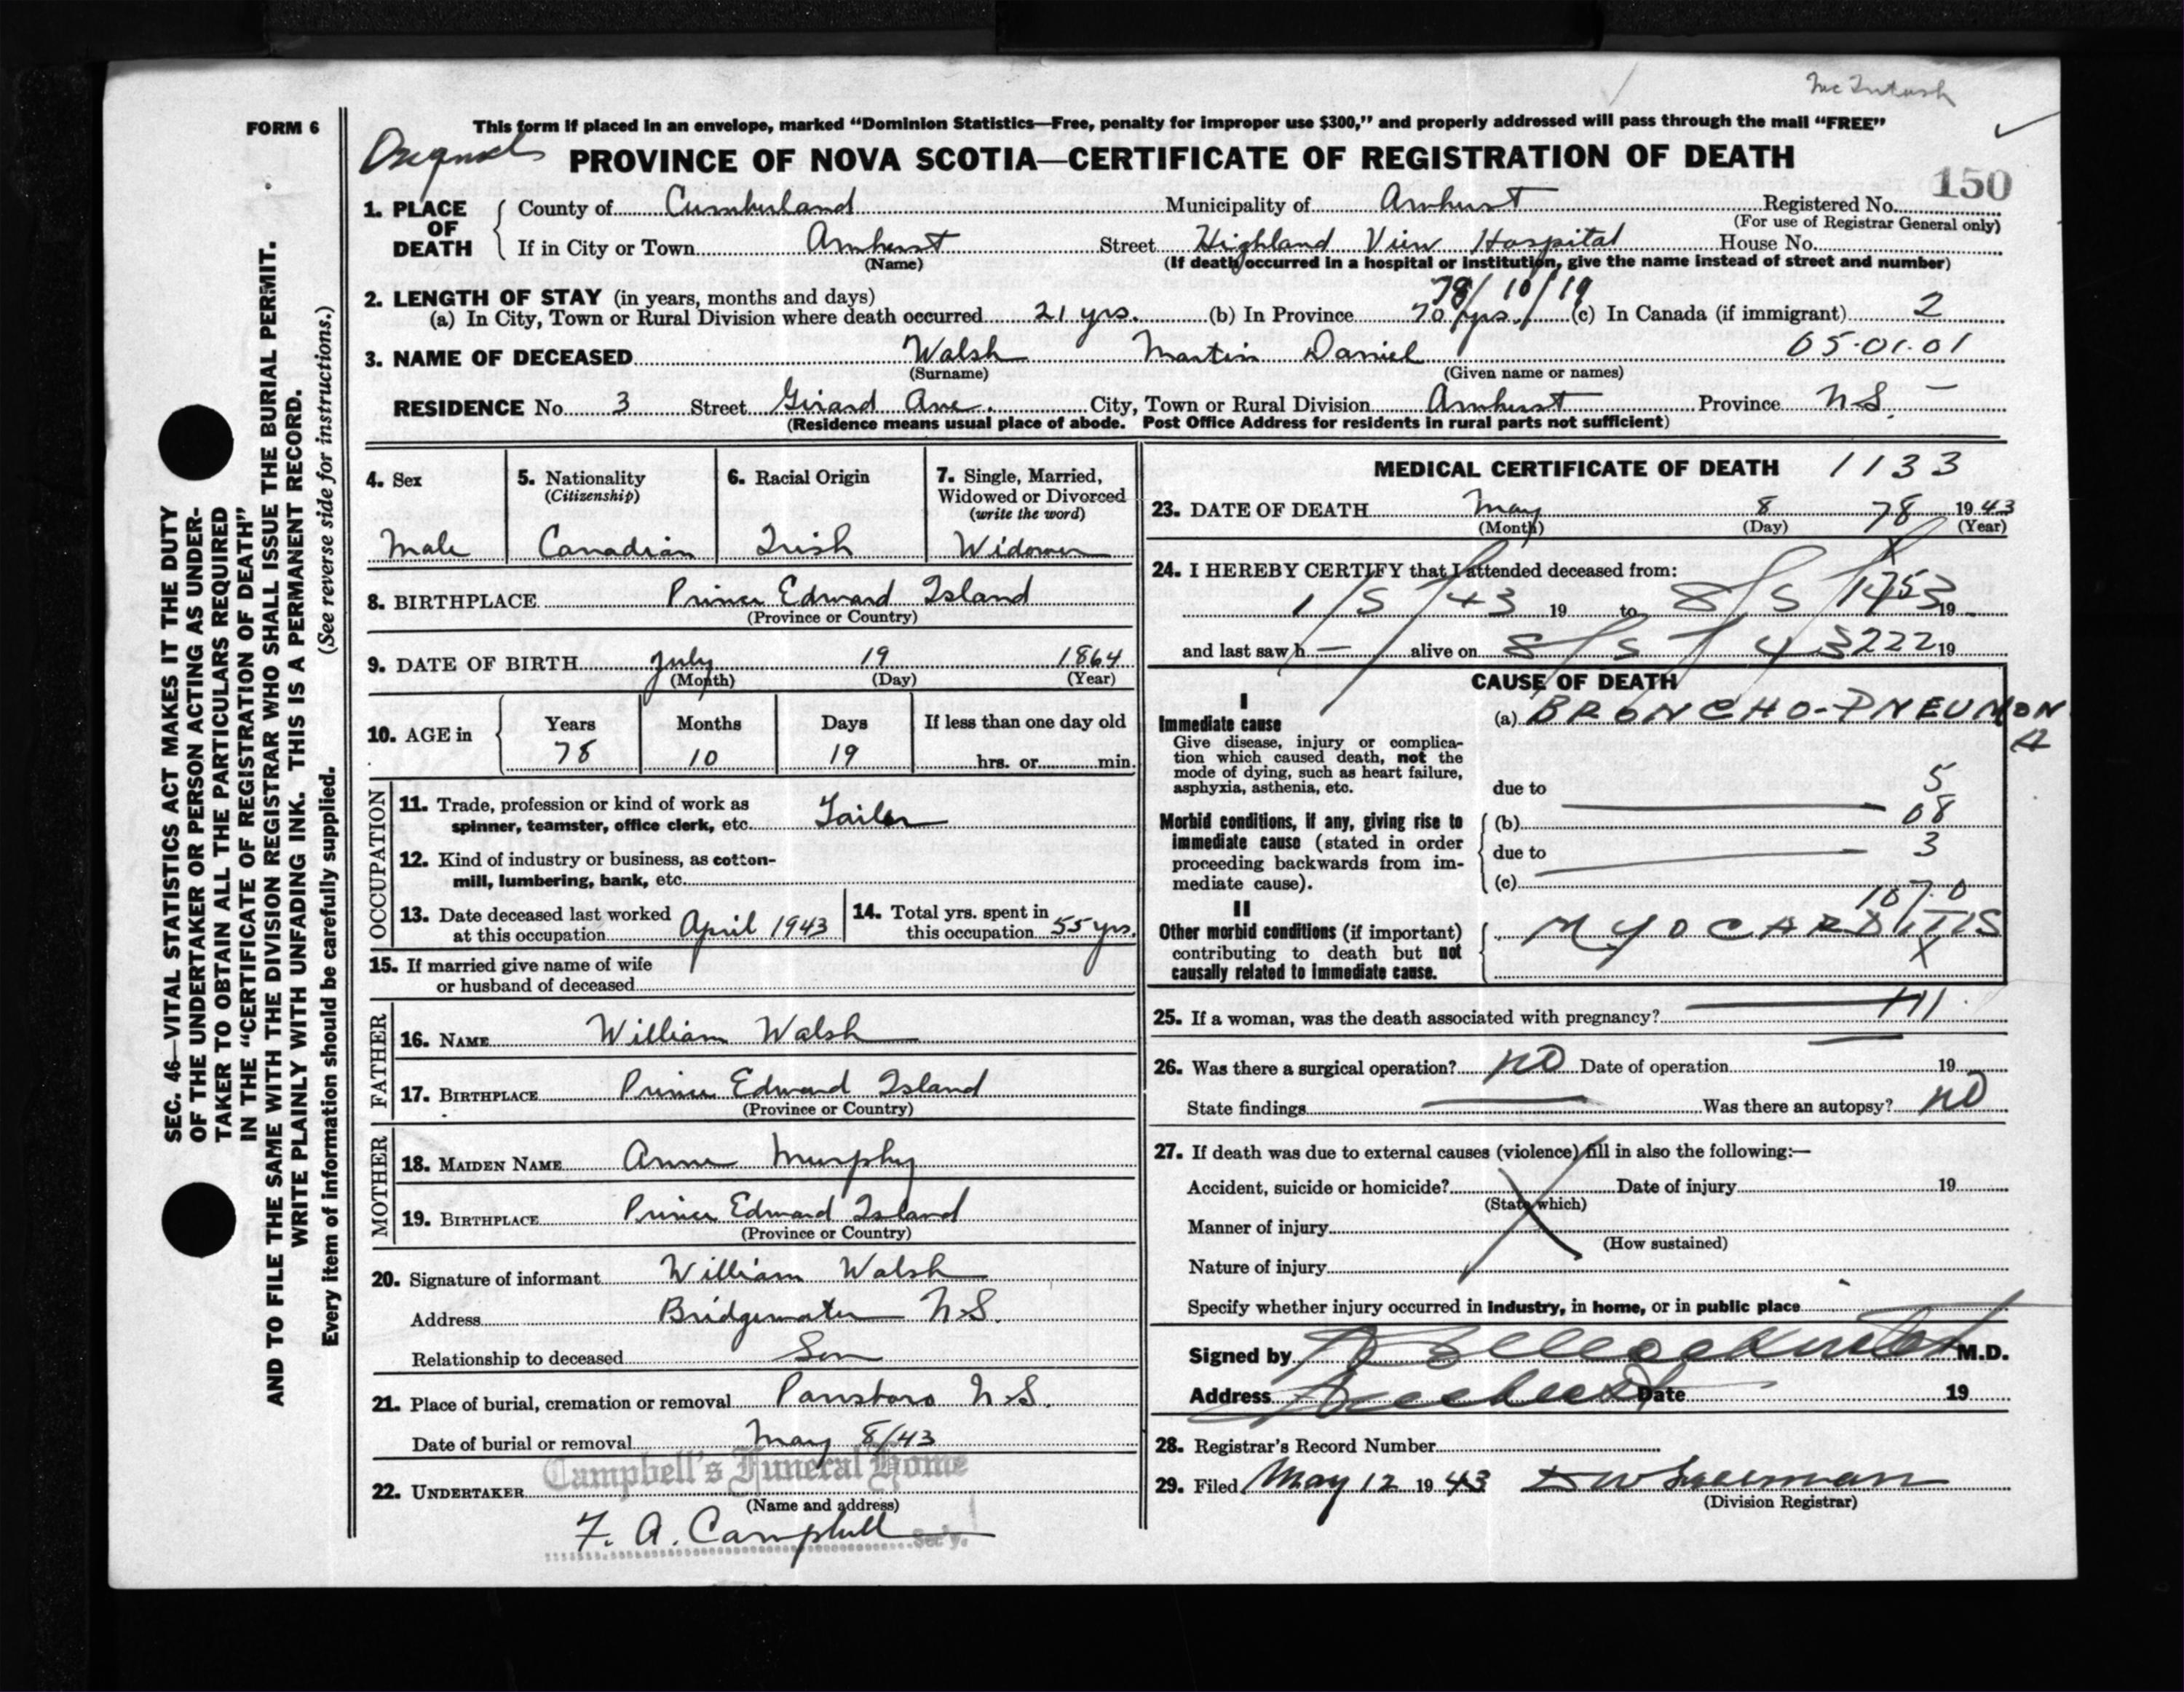 McIntosh
FORM 6
This form if placed in an envelope, marked “Dominion Statistics—Free, penalty for improper use $300,” and properly addressed will pass through the mail “FREE”
PROVINCE OF NOVA SCOTIA—CERTIFICATE OF REGISTRATION OF DEATH
150
1. PLACE OF DEATH
County of Cumberland Municipality of Amherst Registered No.
(For use of Registrar General only)
If in City or Town Amherst Street Highland View Hospital House No.
(Name) (If death occurred in a hospital or institution, give the name instead of street and number)
2. LENGTH OF STAY (in years, months and days) 78/10/19
(a) In City, Town or Rural Division where death occurred 21 yrs. (b) In Province 70 yrs. (c) In Canada (if immigrant) 2
3. NAME OF DECEASED Walsh Martin Daniel 05-01-01
(Surname) (Given name or names)
RESIDENCE No. 3 Street Girard Ave. City, Town or Rural Division Amherst Province N.S. —
(Residence means usual place of abode. Post Office Address for residents in rural parts not sufficient)
4. Sex
Male
5. Nationality
(Citizenship)
Canadian
6. Racial Origin
Irish
7. Single, Married,
Widowed or Divorced
(write the word)
Widower
8. BIRTHPLACE Prince Edward Island
(Province or Country)
9. DATE OF BIRTH July 19 1864
(Month) (Day) (Year)
10. AGE in
Years Months Days If less than one day old
78 10 19 hrs. or min.
OCCUPATION
11. Trade, profession or kind of work as
spinner, teamster, office clerk, etc. Tailor
12. Kind of industry or business, as cotton-
mill, lumbering, bank, etc.
13. Date deceased last worked
at this occupation April 1943
14. Total yrs. spent in
this occupation 55 yrs.
15. If married give name of wife
or husband of deceased
FATHER
16. NAME William Walsh
17. BIRTHPLACE Prince Edward Island
(Province or Country)
MOTHER
18. MAIDEN NAME Anne Murphy
19. BIRTHPLACE Prince Edward Island
(Province or Country)
20. Signature of informant William Walsh
Address Bridgewater N.S.
Relationship to deceased Son
21. Place of burial, cremation or removal Parrsboro N.S.
Date of burial or removal May 8/43
Campbell's Funeral Home
22. UNDERTAKER
(Name and address)
F. A. Campbell Sec'y.
MEDICAL CERTIFICATE OF DEATH 1133
23. DATE OF DEATH May 8 1943
(Month) (Day) (Year)
78
24. I HEREBY CERTIFY that I attended deceased from:
1/5/43 19 to 8/5/ 19
and last saw h — alive on 8/5/43 222 19
CAUSE OF DEATH
I
Immediate cause
Give disease, injury or complica-
tion which caused death, not the
mode of dying, such as heart failure,
asphyxia, asthenia, etc.
(a) BRONCHO-PNEUMONIA
due to 5
Morbid conditions, if any, giving rise to
immediate cause (stated in order
proceeding backwards from im-
mediate cause).
(b) 08
due to 3
(c)
107.0
II
Other morbid conditions (if important)
contributing to death but not
causally related to immediate cause.
MYOCARDITIS
X
25. If a woman, was the death associated with pregnancy?
26. Was there a surgical operation? NO Date of operation 19
State findings Was there an autopsy? NO
27. If death was due to external causes (violence) fill in also the following:—
Accident, suicide or homicide? Date of injury 19
(State which)
Manner of injury
(How sustained)
Nature of injury
Specify whether injury occurred in industry, in home, or in public place
Signed by M.D.
Address Amherst Date 19
28. Registrar's Record Number
29. Filed May 12 1943
(Division Registrar)
SEC. 46—VITAL STATISTICS ACT MAKES IT THE DUTY
OF THE UNDERTAKER OR PERSON ACTING AS UNDER-
TAKER TO OBTAIN ALL THE PARTICULARS REQUIRED
IN THE “CERTIFICATE OF REGISTRATION OF DEATH”
AND TO FILE THE SAME WITH THE DIVISION REGISTRAR WHO SHALL ISSUE THE BURIAL PERMIT.
WRITE PLAINLY WITH UNFADING INK. THIS IS A PERMANENT RECORD.
Every item of information should be carefully supplied. (See reverse side for instructions.)